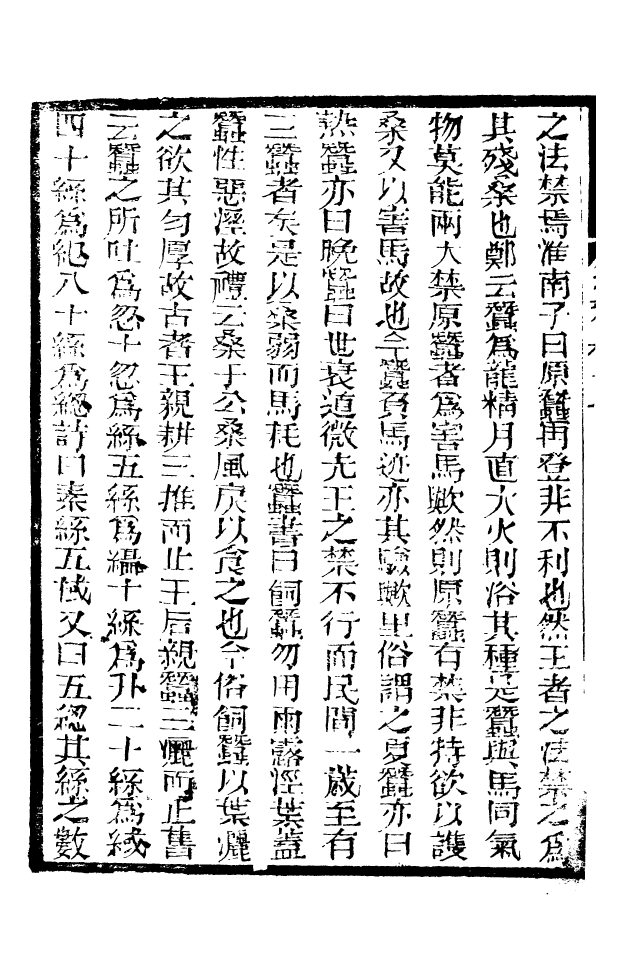 之法禁焉淮南子曰原蠶再登非不利也然王者之法禁之爲
其殘桑也鄭云蠶爲龍精月直大火則浴其種是蠶與馬同氣
物莫能兩大禁原蠶者爲害馬歟然則原蠶有禁非特欲以護
桑又以害馬故也今蠶頁馬迹亦其驗歟里俗謂之夏蠶亦曰
熱蠶亦曰晚蠶曰世衰道微先王之禁不行而民間一歲至有
三蠶者矣是以桑弱而馬耗也蠶書曰飼蠶勿用雨露溼葉蓋
蠶性惡溼故禮云桑于公桑風戾以食之也今俗飼蠶以葉灑
之欲其勻厚故古者王親耕三推而止王后親蠶三灑而止舊
云蠶之所吐爲忽十忽爲絲五絲爲䌰十絲爲升二十絲爲緎
四十絲爲紀八十絲爲緫詩曰素絲五緎又曰五緫其絲之數